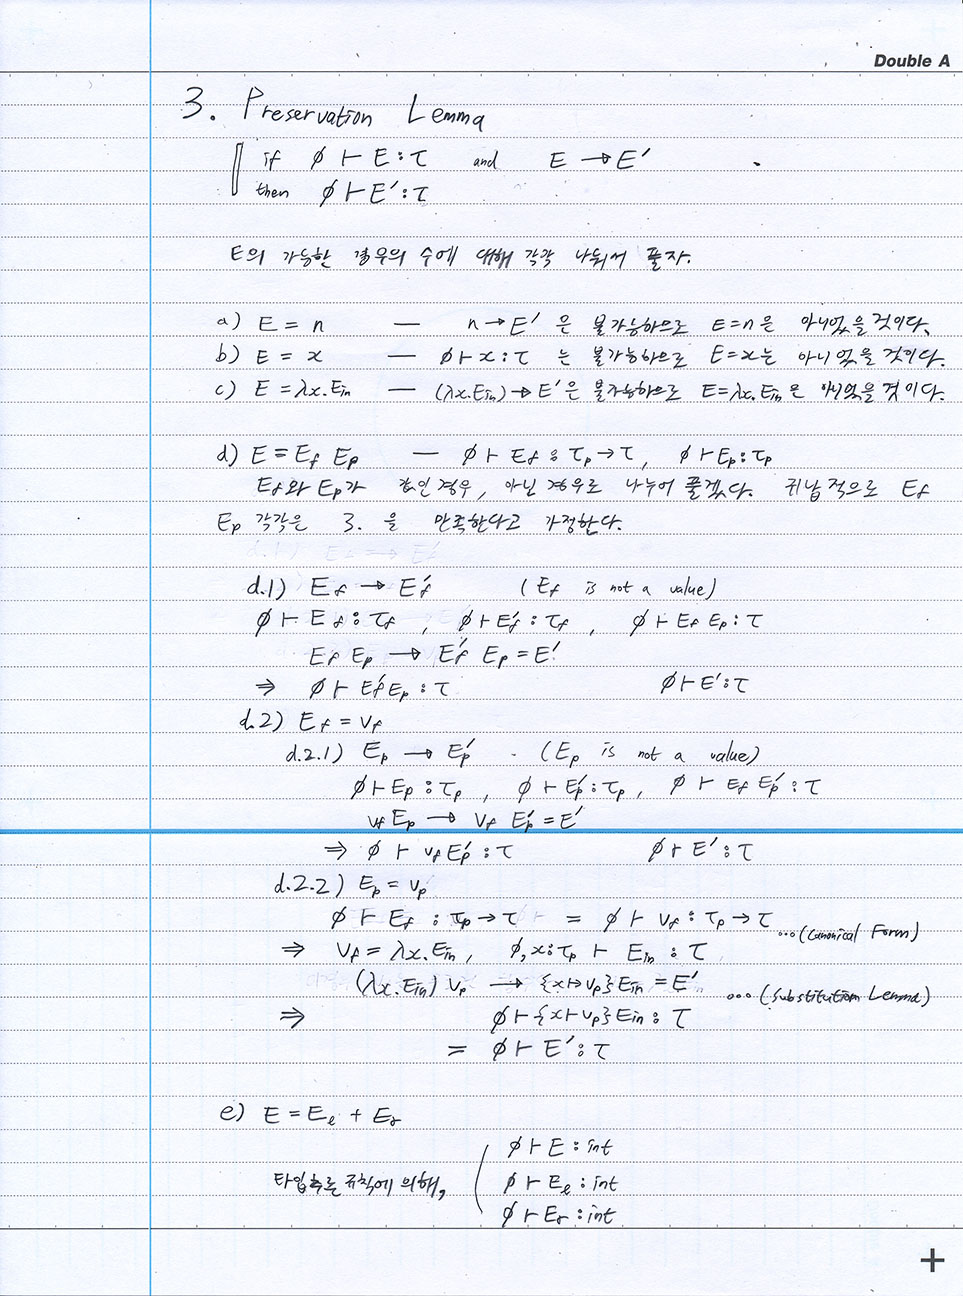 Double A
3. Preservation Lemma
if ∅ ⊢ E : τ and E → E'
then ∅ ⊢ E' : τ
E의 가능한 경우의 수에 대해 각각 나눠서 풀자.
a) E = n — n → E' 은 불가능하므로 E=n은 아니었을 것이다.
b) E = x — ∅ ⊢ x : τ 는 불가능하므로 E=x는 아니었을 것이다.
c) E = λx.Ein — (λx.Ein) → E'은 불가능하므로 E=λx.Ein은 아니었을 것이다.
d) E = Ef Ep — ∅ ⊢ Ef : τp → τ, ∅ ⊢ Ep : τp
Ef와 Ep가 값인 경우, 아닌 경우로 나누어 풀겠다. 귀납적으로 Ef
Ep 각각은 3. 을 만족한다고 가정한다.
d.1) Ef → Ef' (Ef is not a value)
∅ ⊢ Ef : τf , ∅ ⊢ Ef' : τf , ∅ ⊢ Ef Ep : τ
Ef Ep → Ef' Ep = E'
⇒ ∅ ⊢ Ef' Ep : τ ∅ ⊢ E' : τ
d.2) Ef = vf
d.2.1) Ep → Ep' (Ep is not a value)
∅ ⊢ Ep : τp , ∅ ⊢ Ep' : τp , ∅ ⊢ Ef Ep' : τ
vf Ep → vf Ep' = E'
⇒ ∅ ⊢ vf Ep' : τ ∅ ⊢ E' : τ
d.2.2) Ep = vp
∅ ⊢ Ef : τp → τ = ∅ ⊢ vf : τp → τ ...(Canonical Form)
⇒ vf = λx.Ein, ∅, x : τp ⊢ Ein : τ
(λx.Ein) vp → {x ↦ vp} Ein = E' ...(Substitution Lemma)
⇒ ∅ ⊢ {x ↦ vp} Ein : τ
= ∅ ⊢ E' : τ
e) E = Eℓ + Er
∅ ⊢ E : int
타입추론 규칙에 의해, ∅ ⊢ Eℓ : int
∅ ⊢ Er : int